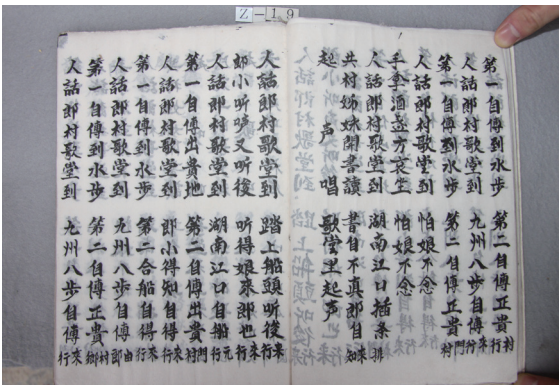 Z-19
第一自傳到水步 第二自傳正貴村
人話郎村歌堂到 九州八步自傳來行
第一自傳到水步 第二自傳正貴門村
人話郎村歌堂到 怕娘不念
手拿酒盞方哀坐 怕娘不念
人話郎村歌堂到 湖南江口插条排
共村姊妹開書讀 書自不真郎自知
起声唱 歌堂里起声
人話郎村歌堂到 踏上船頭听後來行
郎小听 又听後 听得娘來郎也來行
人話郎村歌堂到 湖南江口自船行
第一自傳出貴地 第二自傳出貴門村
人話郎村歌堂到 郎小得知自得來行
第一自傳到水步 第二合船自得來行
人話郎村歌堂到 九州八步自傳由郎
第一自傳到水步 第二自傳正貴村鄉
人話郎村歌堂到 九州八步自傳來行